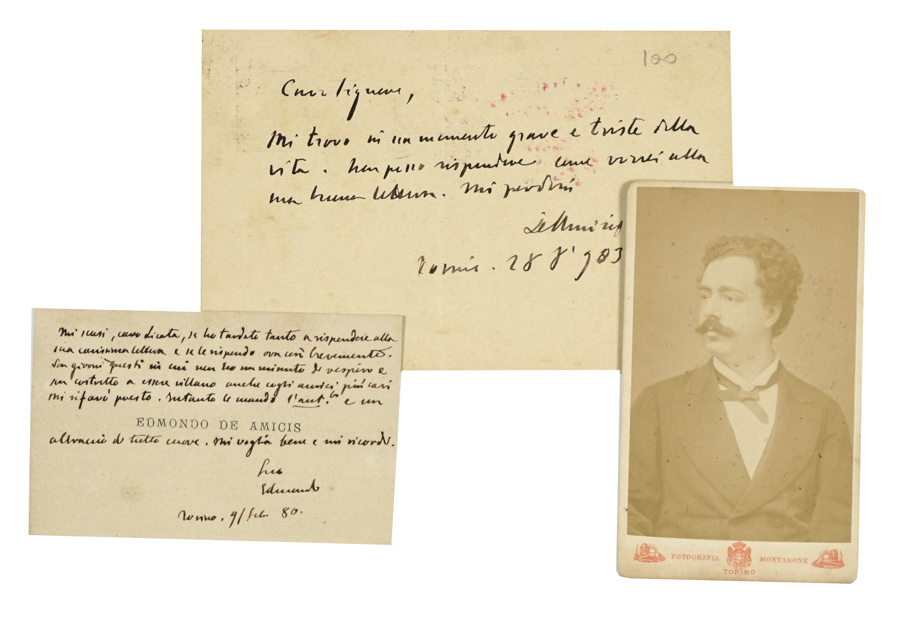 100
Caro Signore,
Mi trovo in un momento grave e triste della
vita. Non posso rispondere come vorrei alla
sua buona lettera. Mi perdoni
DeAmicis
Torino. 28 903
Mi scusi, caro Licata, se ho tardato tanto a rispondere alla
sua carissima lettera e se le rispondo ora così brevemente.
Son giorni questi in cui non ho un minuto di respiro e
son costretto a essere villano anche cogli amici più cari
Mi rifarò presto. Intanto le mando l'aut. e un
EDMONDO DE AMICIS
abbraccio di tutto cuore. Mi voglia bene e mi ricordi.
Suo
Edmondo
Torino. 9/ Feb 80.
FOTOGRAFIA MONTABONE
TORINO